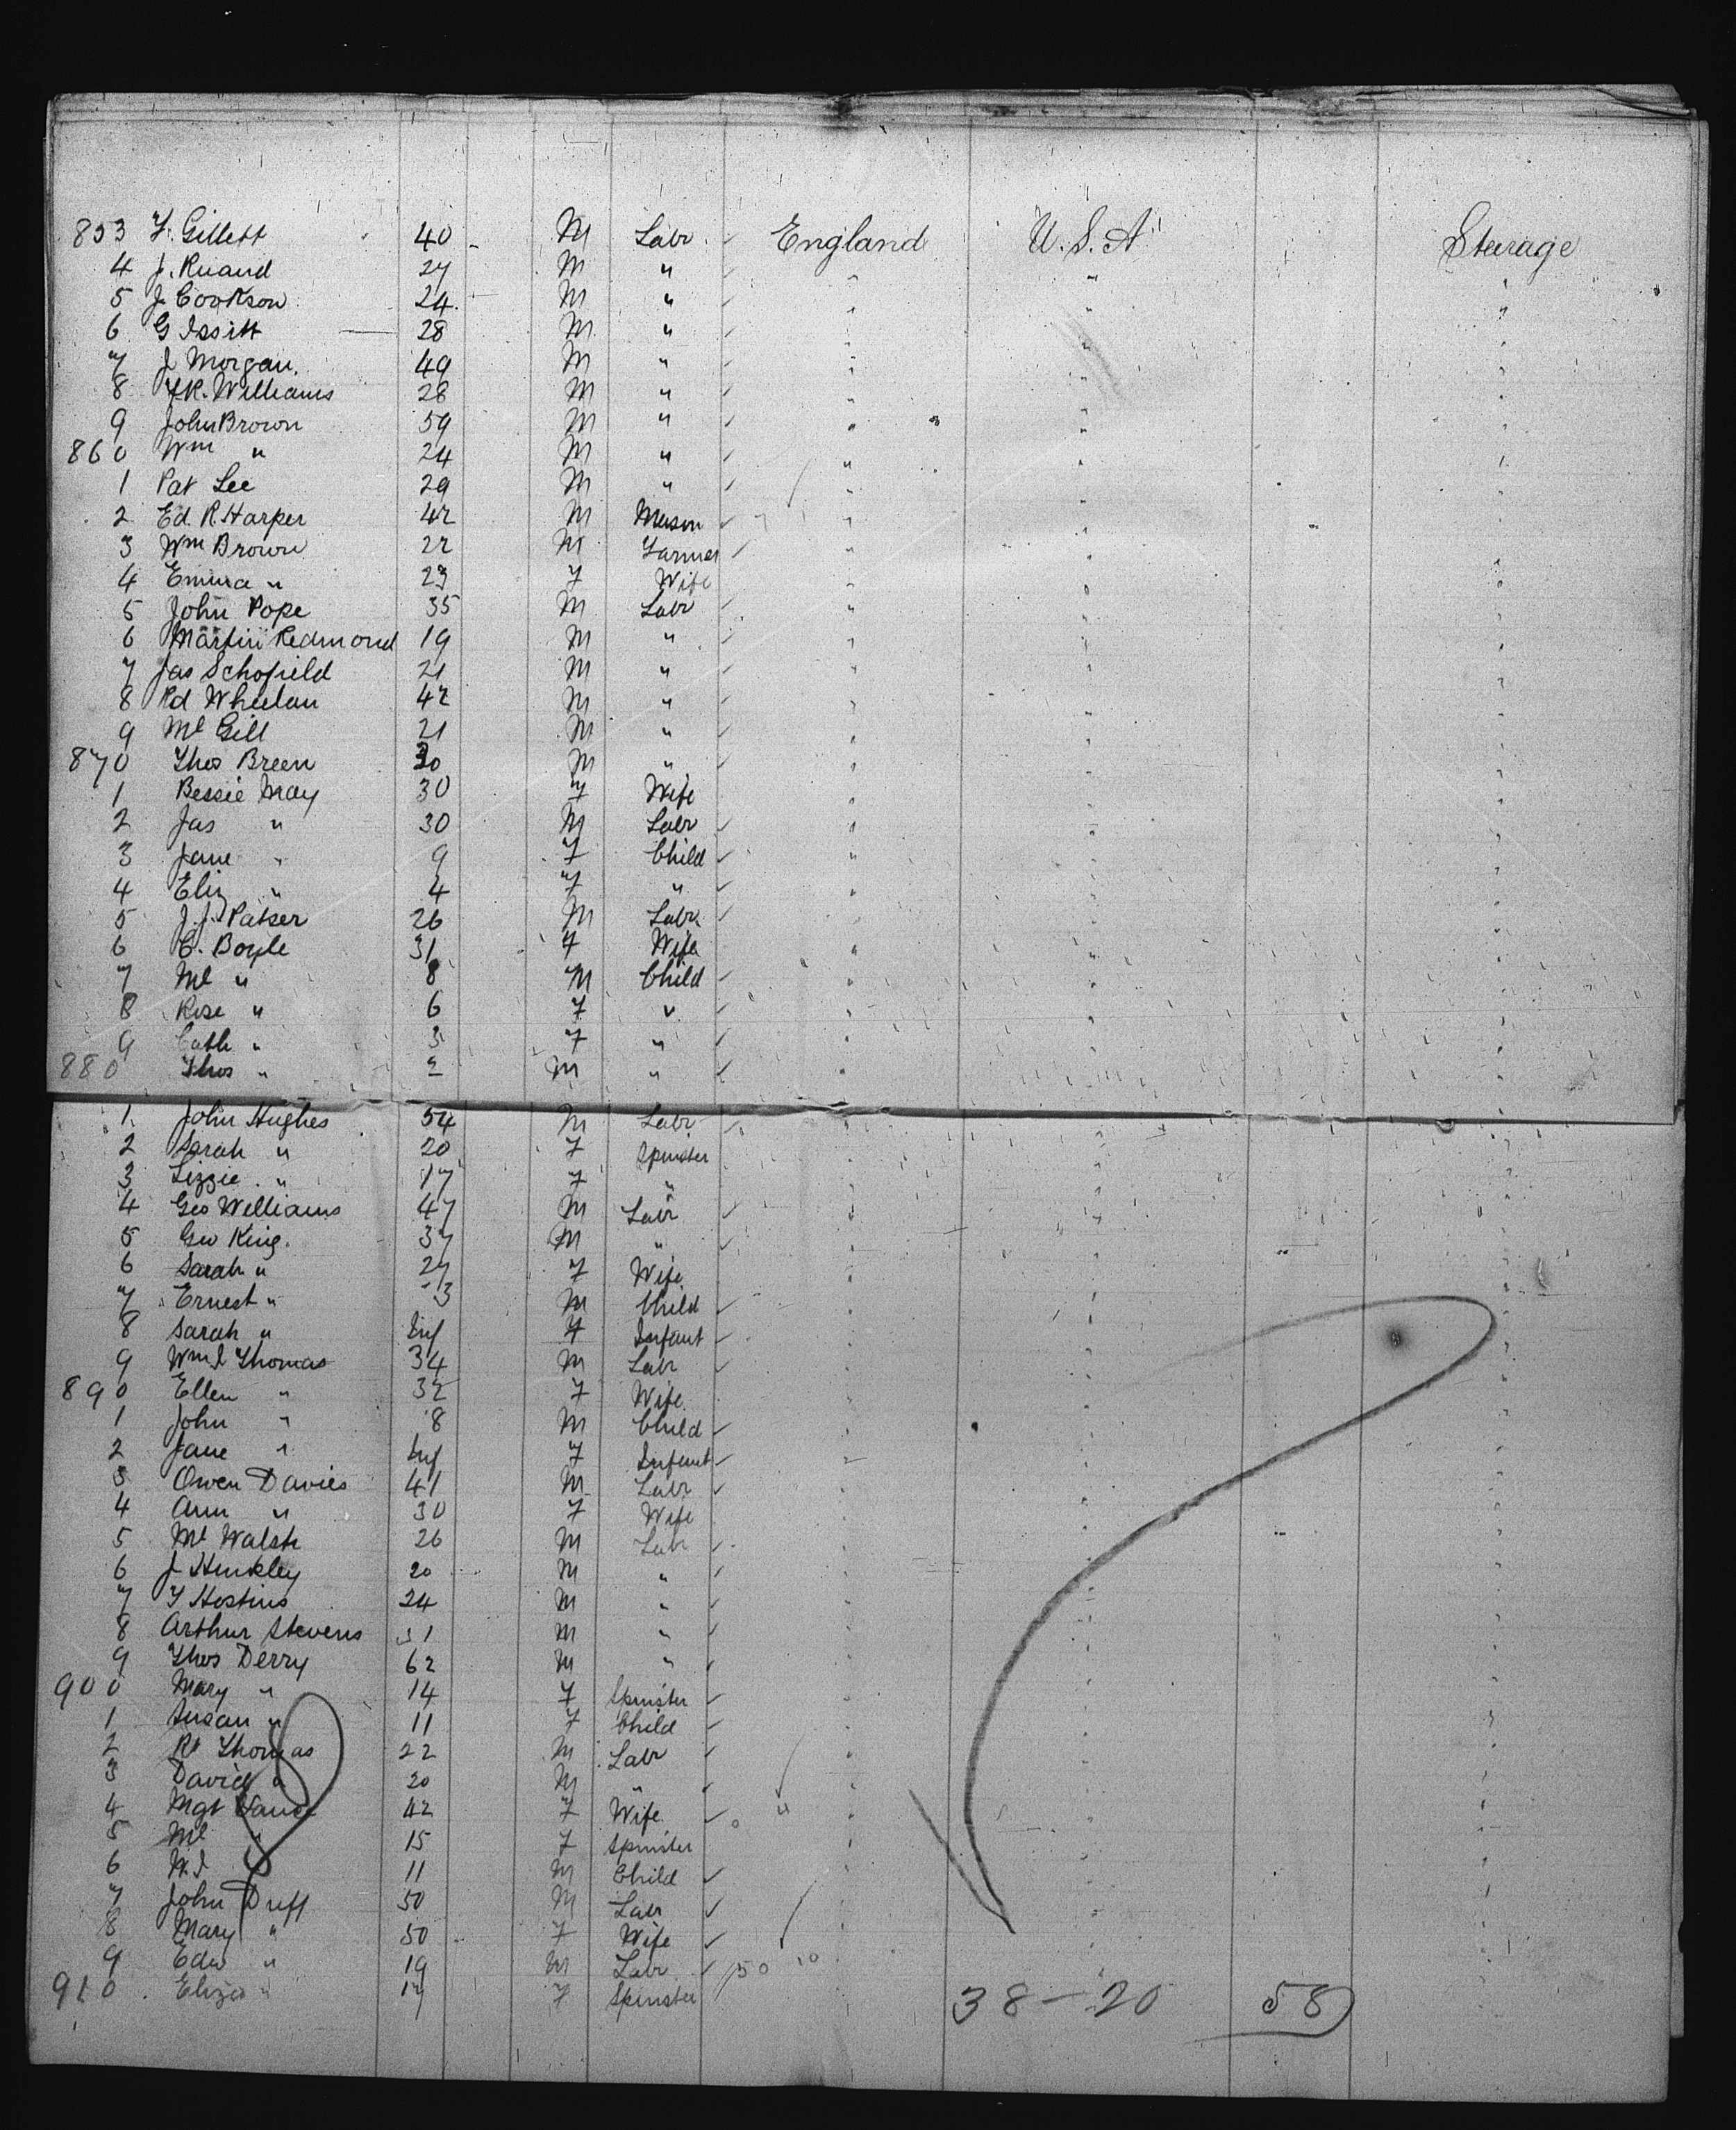 853 F. Gillett 40 M Labr England U.S.A Stearage
4 J. Ruand 27 M "
5 J. Cookson 24 M "
6 G Issitt 28 M "
7 J Morgan. 49 M "
8 J.R. Williams 28 M "
9 John Brown 59 M "
860 Wm " 24 M "
1 Pat Lee 29 M "
2 Ed. R. Harper 42 M Mason
3 Wm Brown 22 M Farmer
4 Emma " 23 F Wife
5 John Pope 35 M Labr
6 Martin Redmond 19 M "
7 Jas Schofield 21 M "
8 Pd Wheelan 42 M "
9 Ml Gill 21 M "
870 Thos Breen 30 M "
1 Bessie May 30 F Wife
2 Jas " 30 M Labr
3 Jane " 9 F Child
4 Eliz " 4 F "
5 J.J. Patser 26 M Labr
6 C. Boyle 31 F Wife
7 Ml " 8 M Child
8 Rose " 6 F "
9 Cath " 3 F "
880 Thos " 2 M "
1 John Hughes 54 M Labr
2 Sarah " 20 F Spinster
3 Lizzie " 17 F "
4 Geo Williams 47 M Labr
5 Geo King. 37 M "
6 Sarah " 27 F Wife
7 Ernest " 3 M Child
8 Sarah " Inf F Infant
9 Wm J Thomas 34 M Labr
890 Ellen " 32 F Wife
1 John " 8 M Child
2 Jane " Inf F Infant
3 Owen Davies 41 M Labr
4 Ann " 30 F Wife
5 Ml Walsh 26 M Labr
6 J Hinkley 20 M "
7 F Hostins 24 M "
8 Arthur Stevens 31 M "
9 Thos Derry 62 M "
900 Mary " 14 F Spinster
1 Susan " 11 F Child
2 Rt Thomas 22 M Labr
3 David " 20 M "
4 Mgt 42 F Wife
5 Ml " 15 F Spinster
6 W.J. 11 M Child
7 John Duff 50 M Labr
8 Mary " 50 F Wife
9 Edw " 19 M Labr
910 Eliza " 17 F Spinster
38-20 58